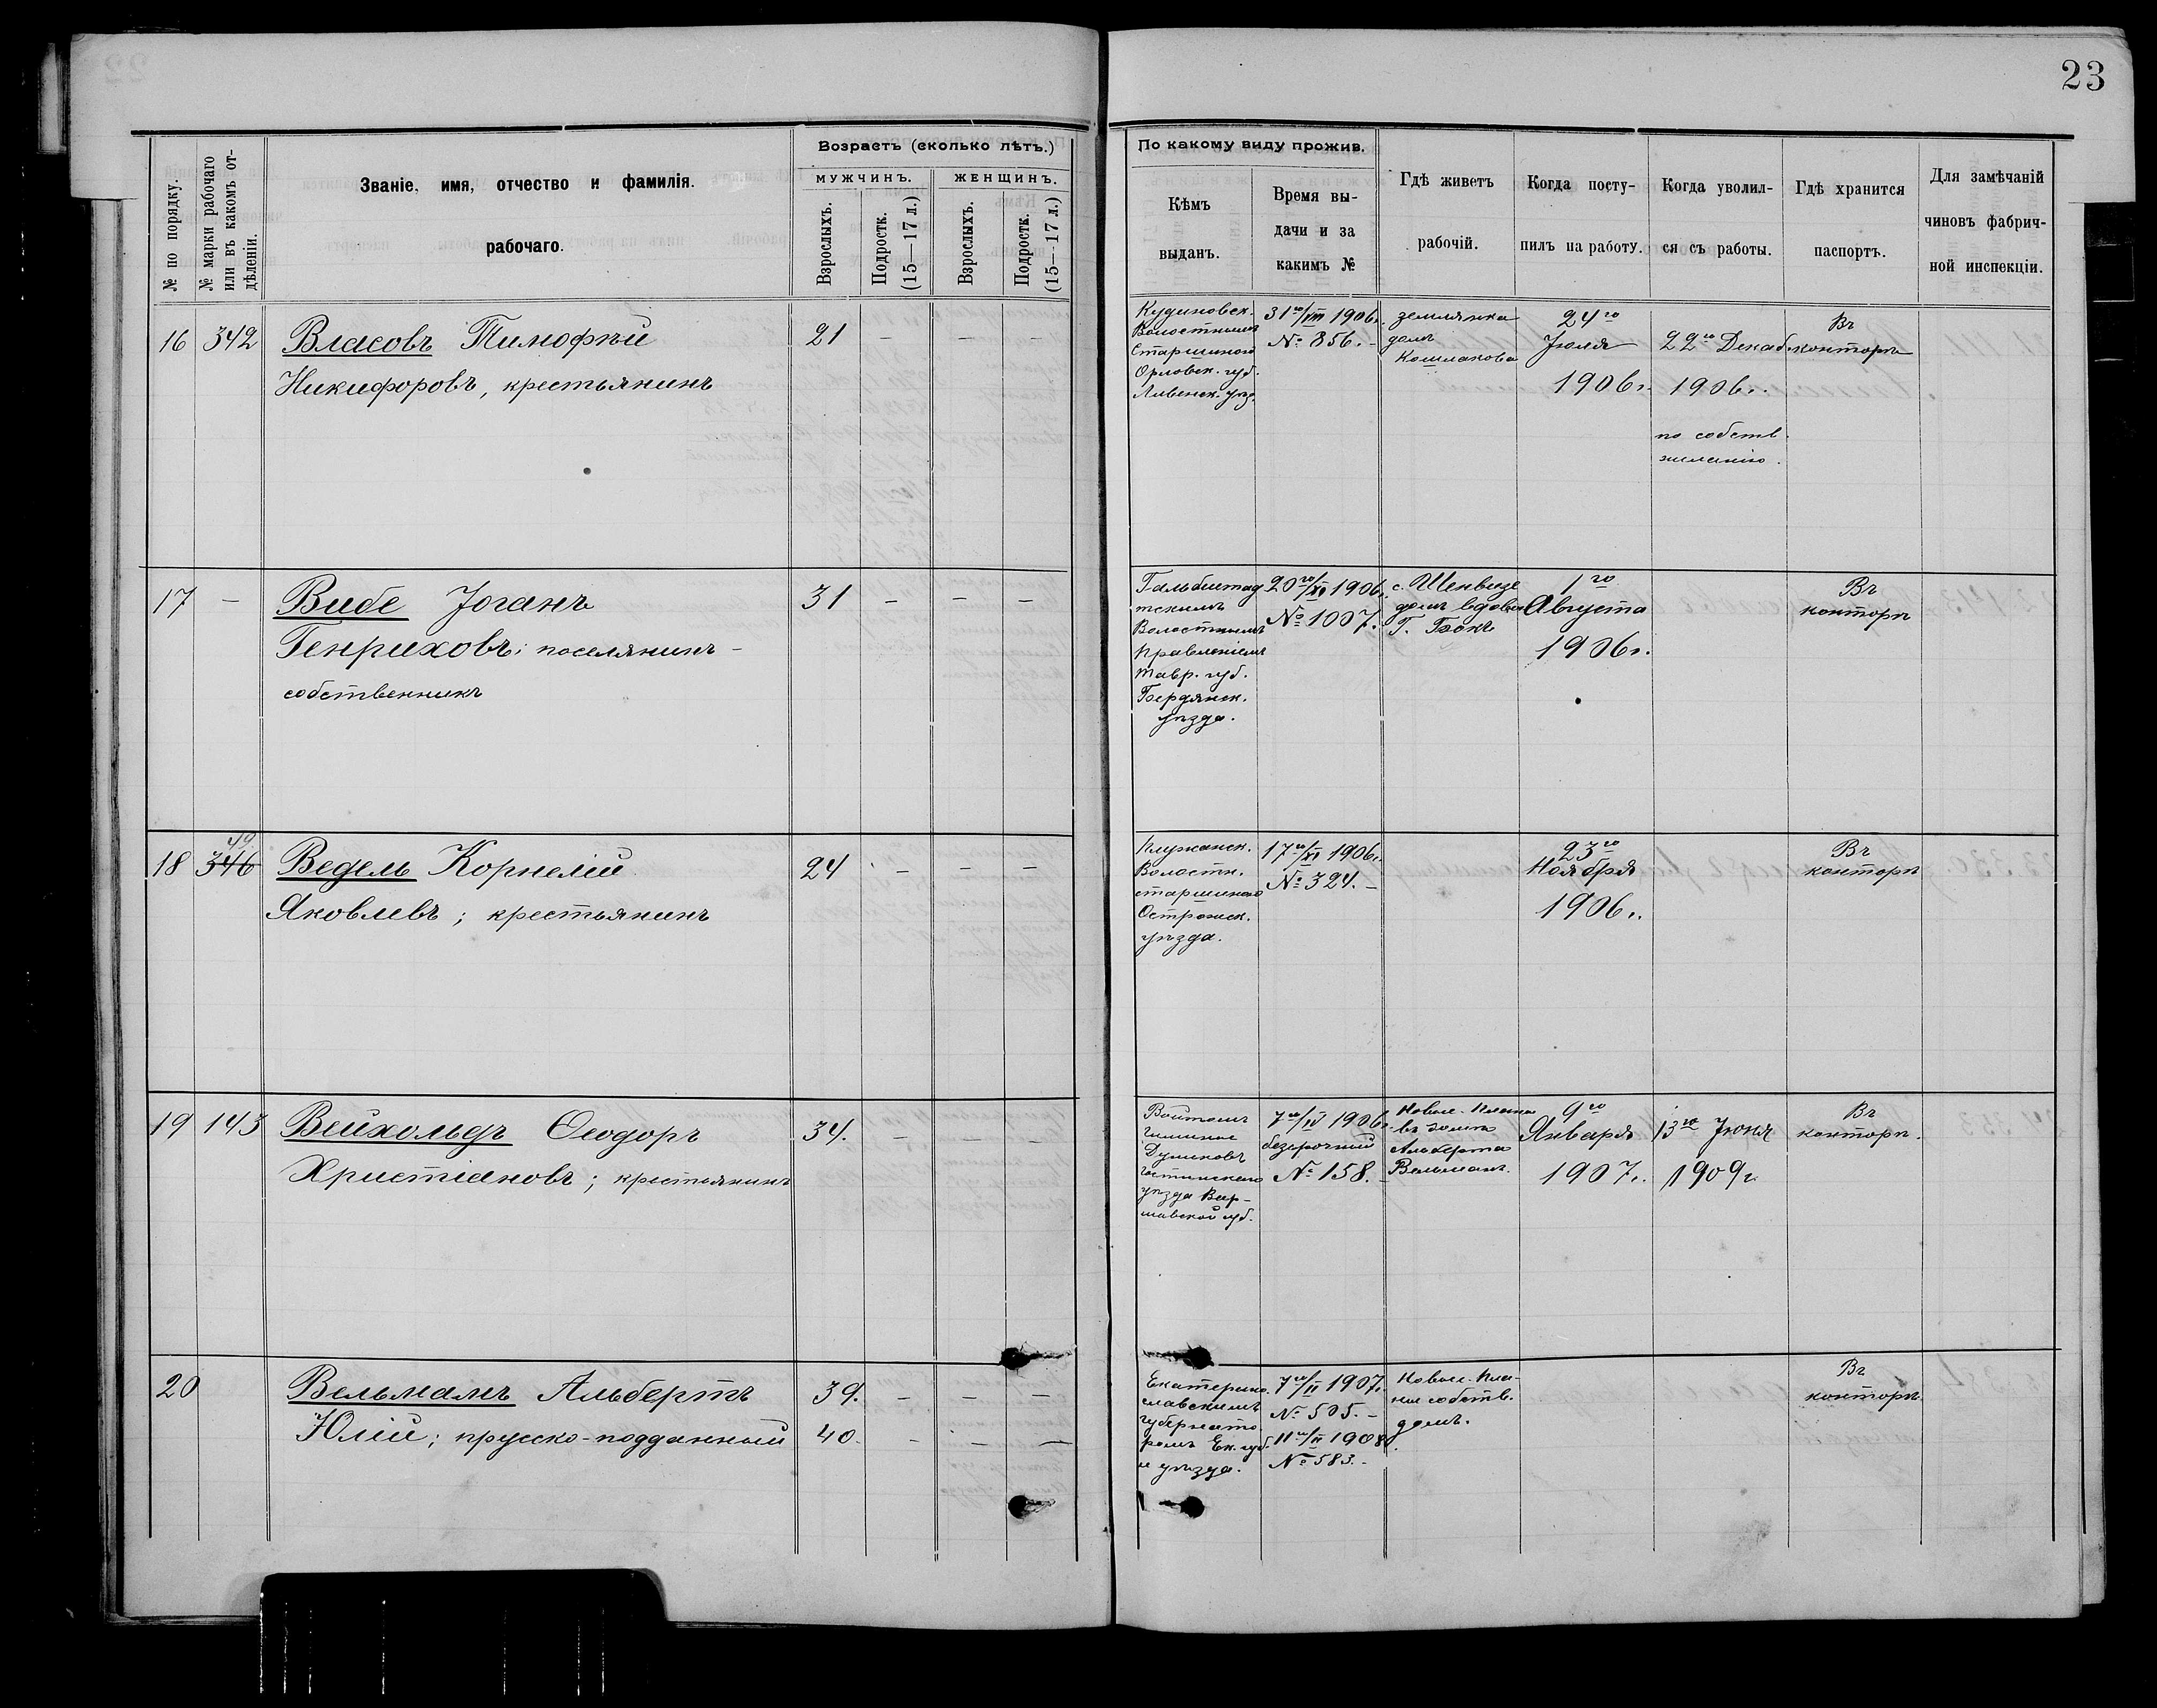 23
№ по порядку.
№ марки рабочаго или въ какомъ отдѣленіи.
Званіе, имя, отчество и фамилія.
рабочаго.
Возрастъ (сколько лѣтъ.)
МУЖЧИНЪ.
ЖЕНЩИНЪ.
Взрослыхъ.
Подростк. (15—17 л.)
Взрослыхъ.
Подростк. (15—17 л.)
По какому виду прожив.
Кѣмъ
выданъ.
Время вы-
дачи и за
какимъ №
Гдѣ живетъ
рабочій.
Когда посту-
пилъ на работу.
Когда уволил-
ся съ работы.
Гдѣ хранится
паспортъ.
Для замѣчаній
чиновъ фабрич-
ной инспекціи.
16 342 Власовъ Тимофѣй
Никифоровъ, крестьянинъ
21 - - -
Кудиновск.
Волостнымъ
Старшиною
Орловск. губ.
Ливенск. уѣз.
31го/VIII 1906г.
№ 856.-
землянка
домъ
Кошлакова
24го
Іюля
1906г.
22го Декаб.
1906г.
по собств.
желанію.
Въ
конторѣ
17 - Вибе Іоганъ
Генриховъ; поселянинъ-
собственникъ
31 - - -
Гальбштад
тскимъ
Волостнымъ
Правленіемъ
Тавр. губ.
Бердянск.
уѣзда.
20го/XI 1906г.
№ 1007.
с. Шенвизе
домъ вдовы
Г. Бокъ
1го
Августа
1906г.
Въ
конторѣ
18 346 49. Ведель Корнелій
Яковлевъ; крестьянинъ
24 - - -
Волостн.
старшиною
Острожск.
уѣзда.
17го/XI 1906г.
№ 324.-
23го
Ноября
1906г.
Въ
конторѣ
19 143 Вейхольдъ Ѳеодоръ
Христіановъ; крестьянинъ
34. - - -
Войтомъ
гмины
Гостинскаго
уѣзда Вар-
шавской губ.
7го/IV 1906г.
безсрочный
№ 158.
Новые-Планы
въ домѣ
Альберта
Вельманъ.
9го
Января
1907г.
13го Іюня
1909г.
Въ
конторѣ.
20 Вельманъ Альбертъ
Юлій; прусско-подданный
39. - - -
40. - - -
Екатерино-
славскимъ
Губернато
ромъ Ек. губ.
и уѣзда.
7го/II 1907г.
№ 505.-
11го/II 1908г.
№ 583.-
Новые-Пла-
ны собств.
домъ.
Въ
конторѣ